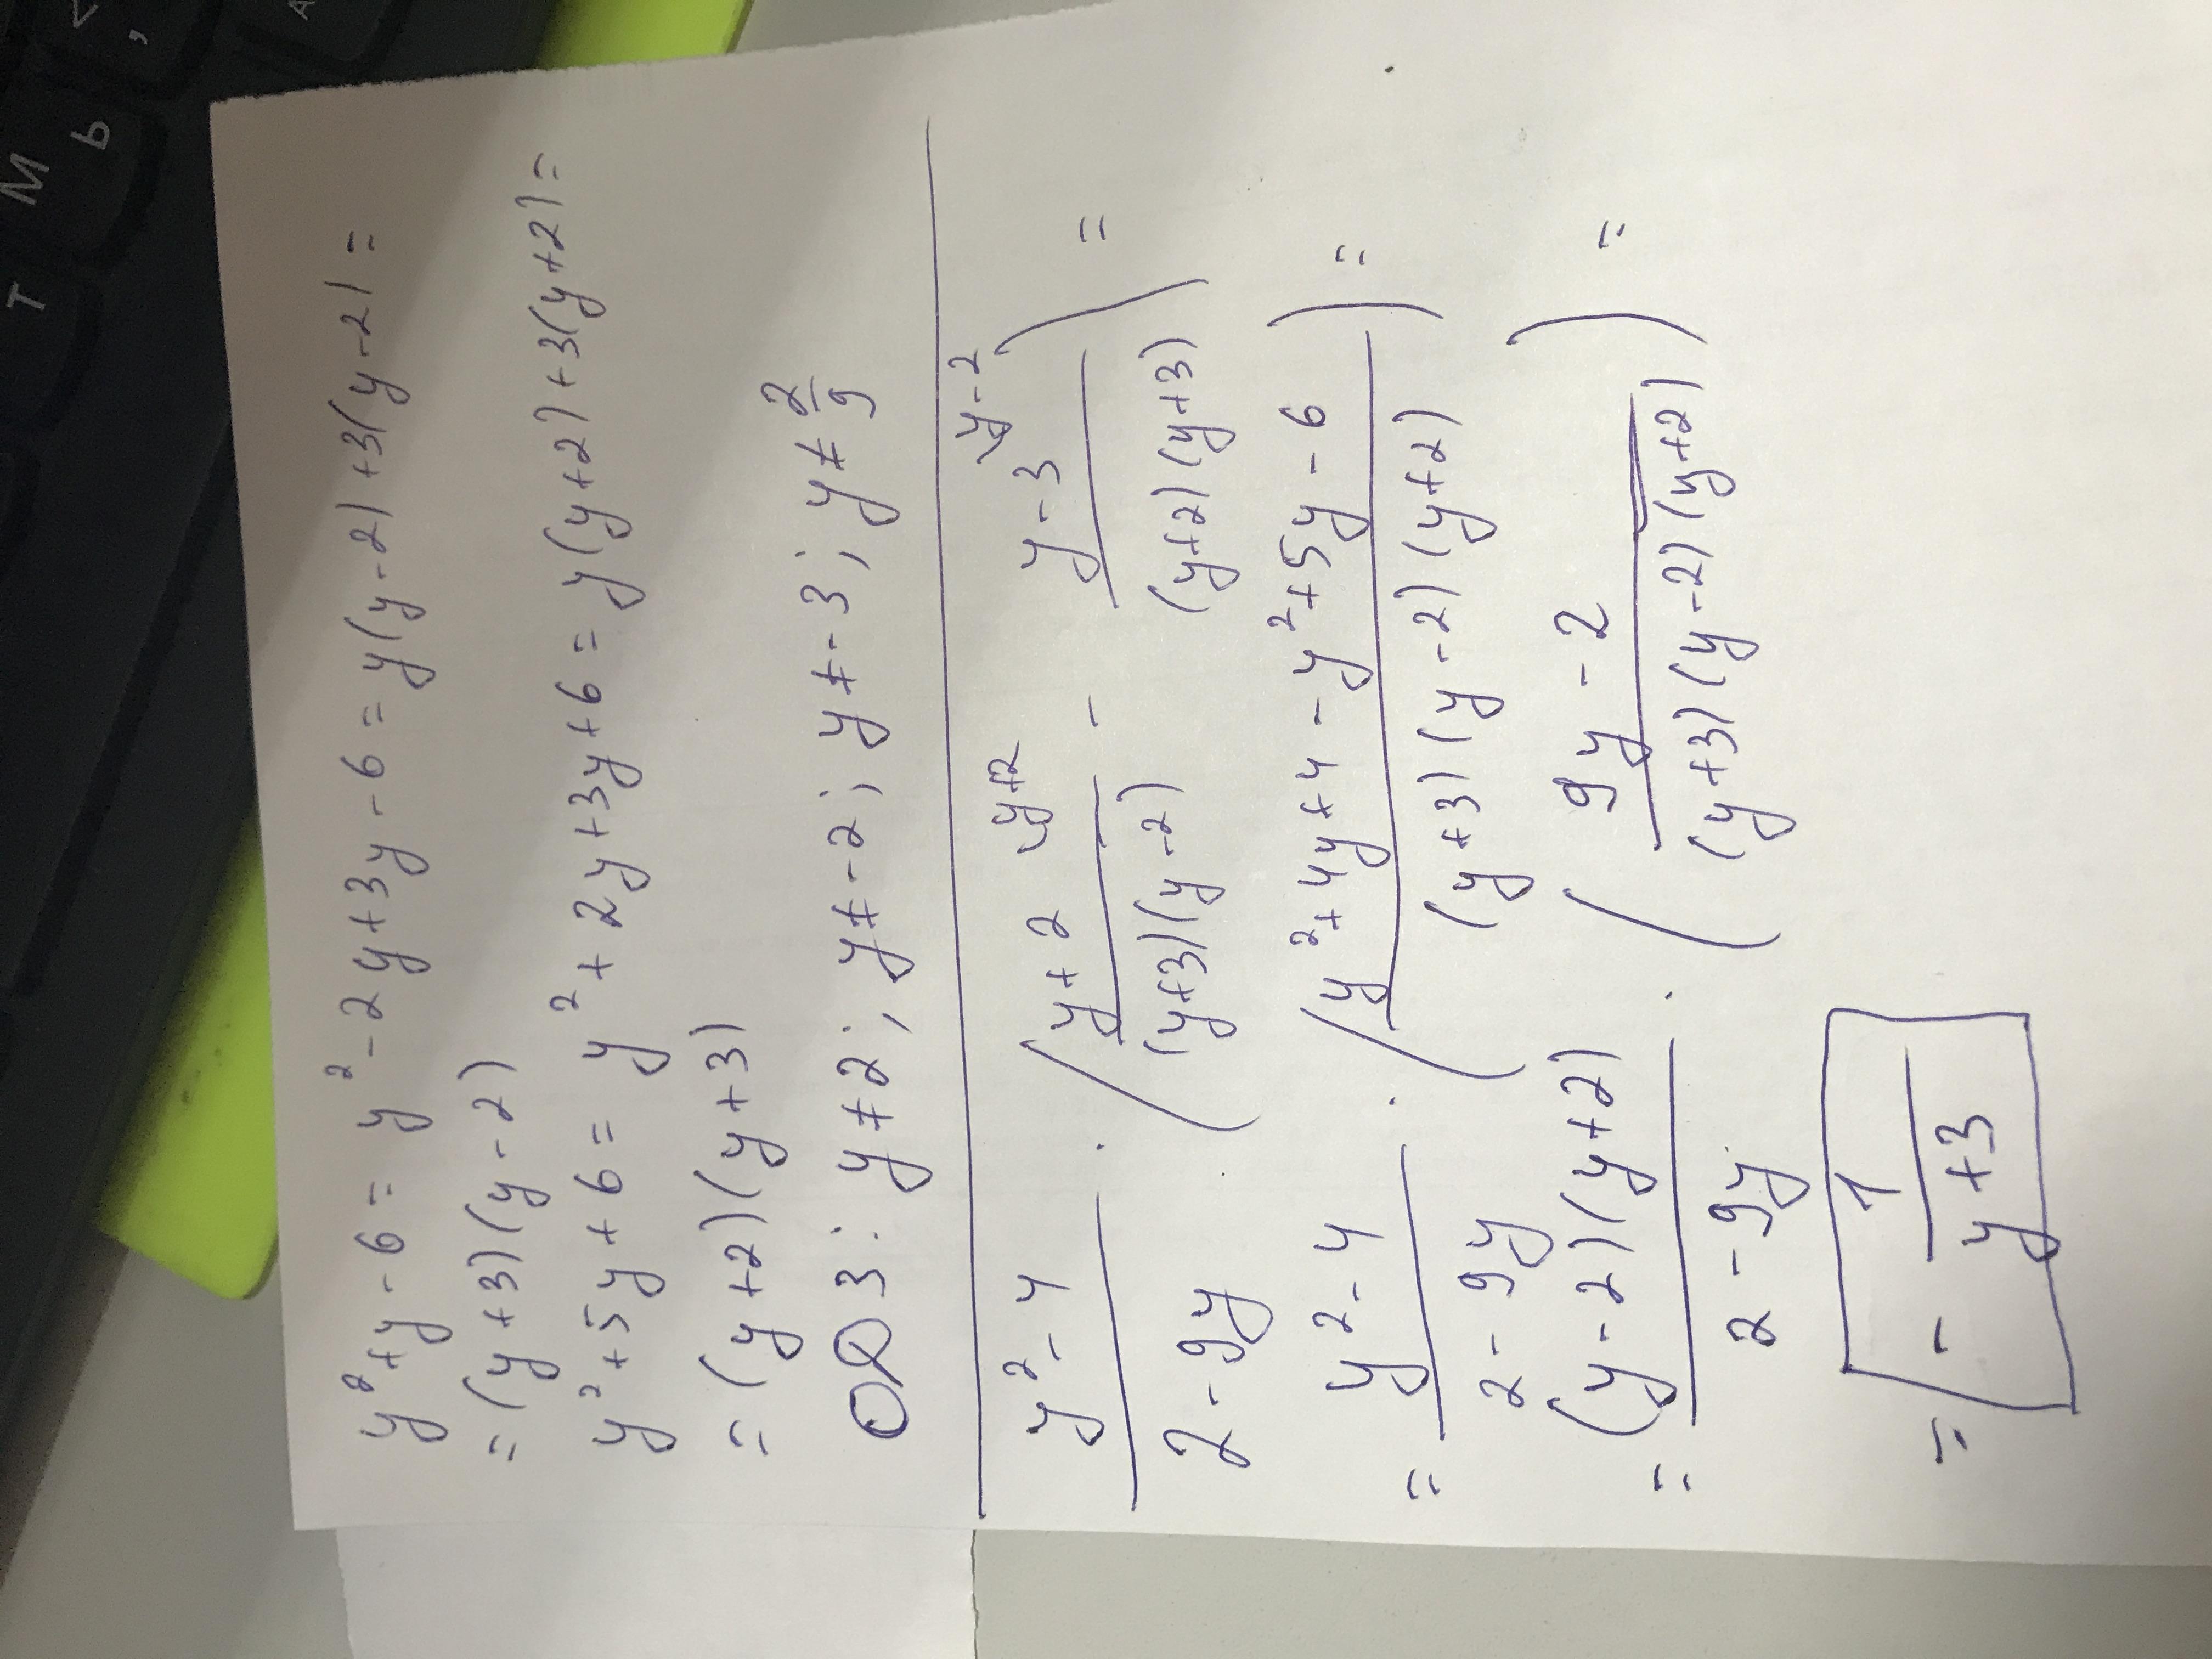 y²+y-6= y²-2y+3y-6=y(y-2)+3(y-2)=
=(y+3)(y-2)
y²+5y+6= y²+2y+3y+6=y(y+2)+3(y+2)=
=(y+2)(y+3)
ОДЗ: y≠2; y≠-2; y≠-3; y≠2/9
(y²-4)/(2-9y) · ((y+2)/((y+3)(y-2)) \y+2 - (y-3)/((y+2)(y+3)) \y-2) =
= (y²-4)/(2-9y) · ((y²+4y+4-y²+5y-6)/((y+3)(y-2)(y+2))) =
= ((y-2)(y+2))/(2-9y) · ((9y-2)/((y+3)(y-2)(y+2))) =
= - 1/(y+3)
Т М Ь
< ,